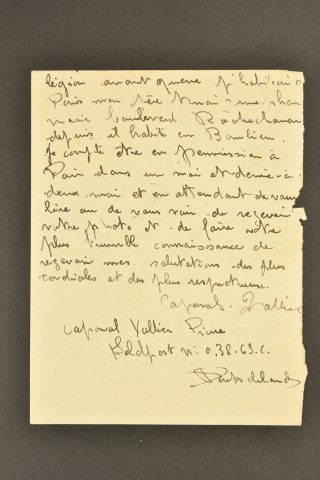 légion avant guerre j'habitais
Paris mon père tenait une
boulevard Rochechouar
depuis il habite en Banlieu.
Je compte etre en permission à
Paris dans un mois et demie à
deux mois et en attendant de vous
lire ou de vous voir de recevoir
votre photo et de faire votre
plus humble connaissance de
recevoir mes salutations des plus
cordiales et des plus respectueux.
Caporal Vallier
Caporal Vallier Pierre
Feldpost n: 0.38.63.c.
Deutschland